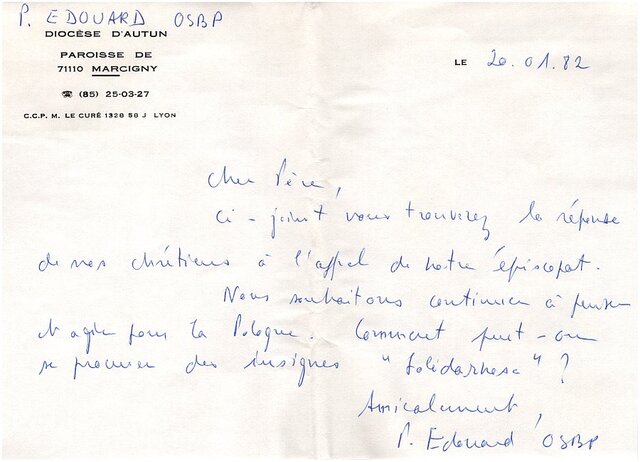 P. EDOUARD OSBP
DIOCÈSE D'AUTUN
PAROISSE DE
71110 MARCIGNY
☎ (85) 25-03-27
C.C.P. M. LE CURÉ 1328 58 J LYON
LE 20.01.82
Cher Père,
Ci-joint vous trouverez la réponse
de nos chrétiens à l'appel de notre épiscopat.
Nous souhaitons continuer à penser
et agir pour la Pologne. Comment peut-on
se procurer des insignes "Solidarnosc" ?
Amicalement,
P. Edouard OSBP